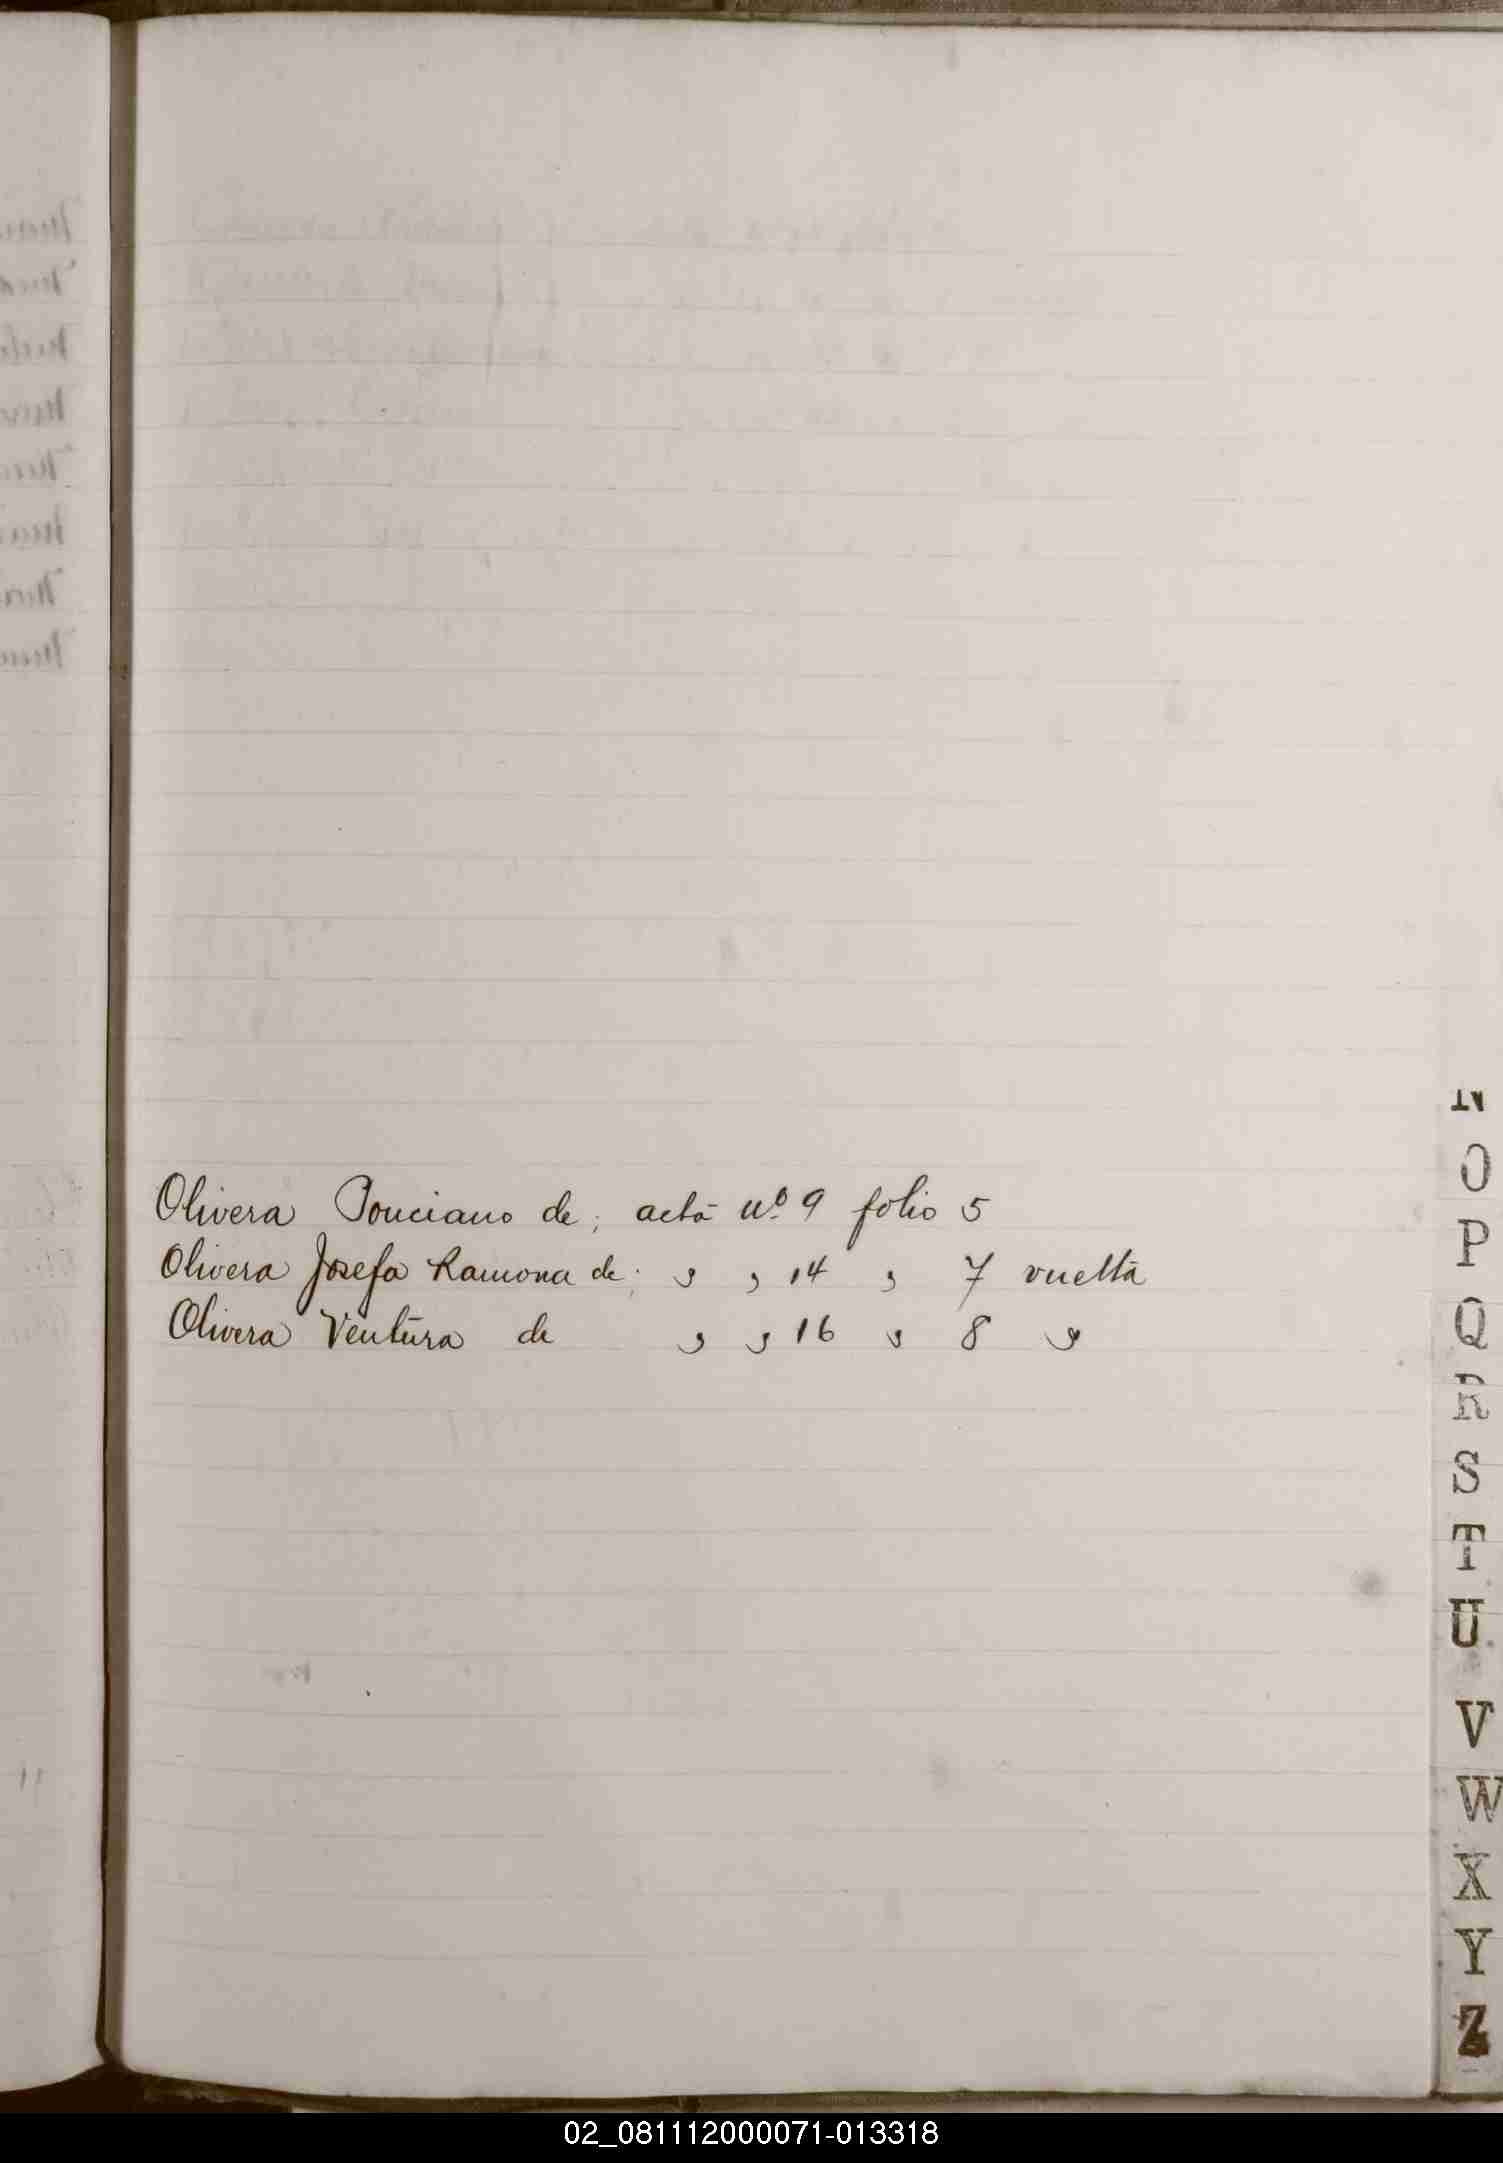 Olivera Ponciano de; acta nº 9 folio 5
Olivera Josefa Ramona de; " " 14 " 7 vuelta
Olivera Ventura de " " 16 " 8 "
N
O
P
Q
R
S
T
U
V
W
X
Y
Z
02_081112000071-013318